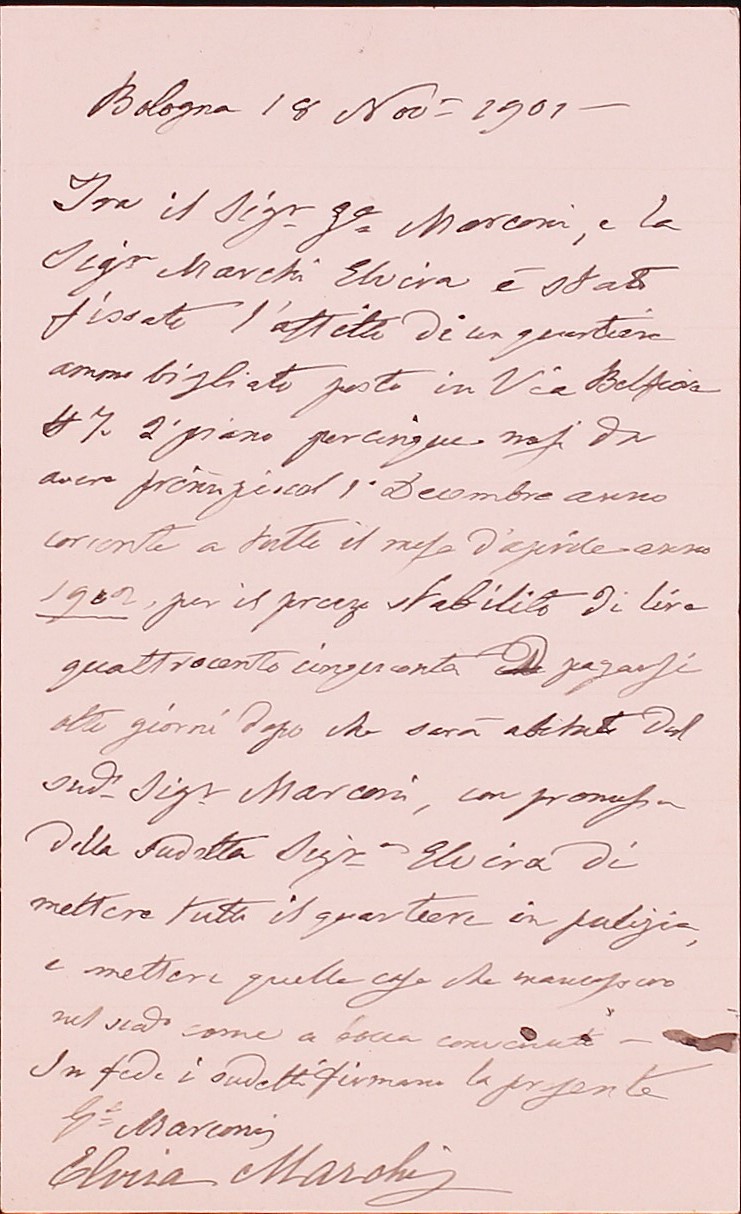 Bologna 18 Nov= 1901 —
Tra il Sigr Marconi, e la
Sigra Marchi Elvira è stato
fissato l'affitto di un quartiere
ammobigliato posto in Via Belfiore
# 7. 2° piano per cinque mesi da
avere principio col 1° Decembre anno
corrente a tutto il mese d'aprile anno
1902, per il prezzo stabilito di lire
quattrocento cinquanta D pagarsi
otto giorni dopo che sarà abitato dal
sudo Sigr Marconi, con promessa
della sudetta Sigra Elvira di
mettere tutto il quartiere in pulizia,
e mettere quelle cose che mancassero
nel come a bocca convenuto —
In fede i sudetti firmano la presente
Marconi
Elvira Marchi